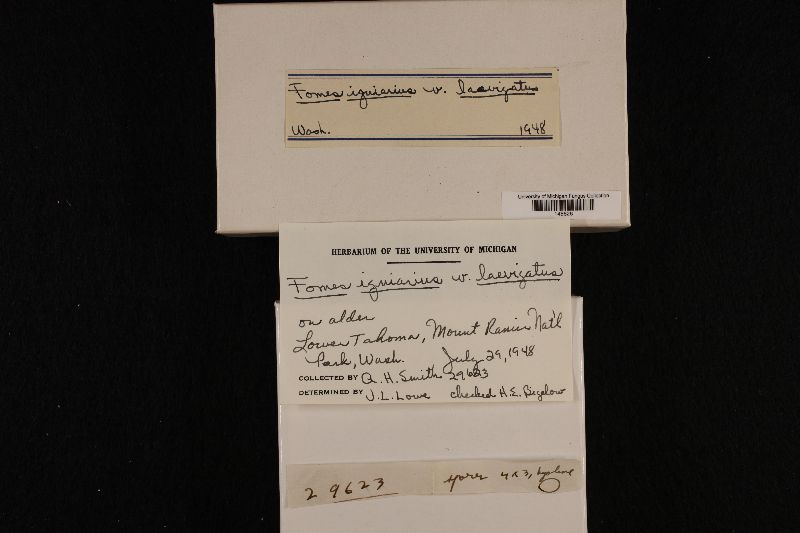 Fomes igniarius v. laevigatus
Wash. 1948
University of Michigan Fungus Collection
HERBARIUM OF THE UNIVERSITY OF MICHIGAN
Fomes igniarius v. laevigatus
on alder
Lower Tahoma, Mount Ranier Nat'l
Park, Wash. July 29, 1948
COLLECTED BY A. H. Smith 29623
DETERMINED BY J. L. Lowe checked H. E. Bigelow
29623 spores 4x3, hyaline